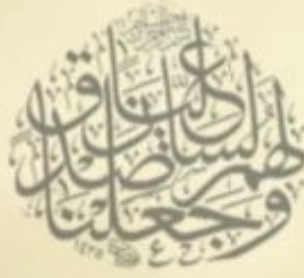 وجعلنا لهم لسان صدق عليا
١٤٣٥